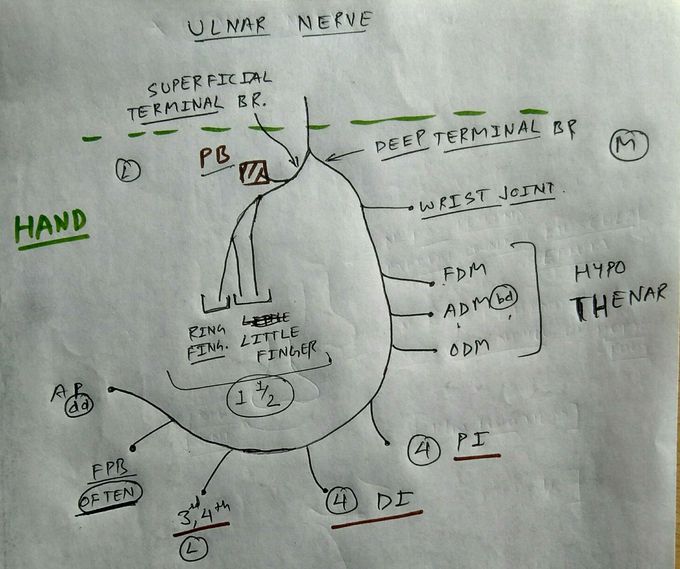 ULNAR NERVE
SUPERFICIAL
TERMINAL BR.
DEEP TERMINAL BR
PB
L
M
HAND
WRIST JOINT.
FDM
ADM bd
ODM
HYPO
THENAR
RING
FING.
LITTLE
FINGER
1 1/2
AP
dd
FPB
OFTEN
3rd, 4th
L
4 DI
4 PI